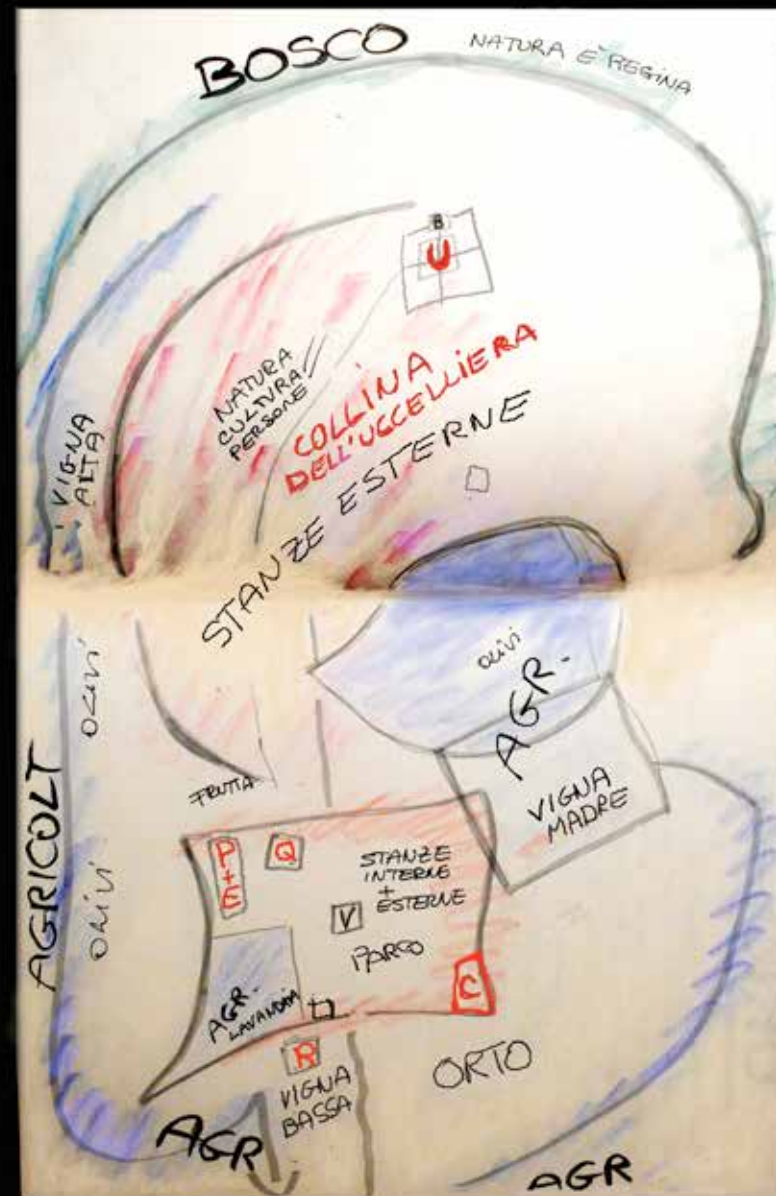 BOSCO
NATURA E' REGINA
B
U
NATURA
CULTURA
PERSONE
COLLINA
DELL'UCCELLIERA
STANZE ESTERNE
VIGNA
ALTA
OLIVI
OLIVI
AGR.
VIGNA
MADRE
FRUTTA
AGRICOLT
OLIVI
P+E
Q
STANZE
INTERNE
+
ESTERNE
V
PARCO
AGR.
LAVANDA
C
R
VIGNA
BASSA
ORTO
AGR
AGR